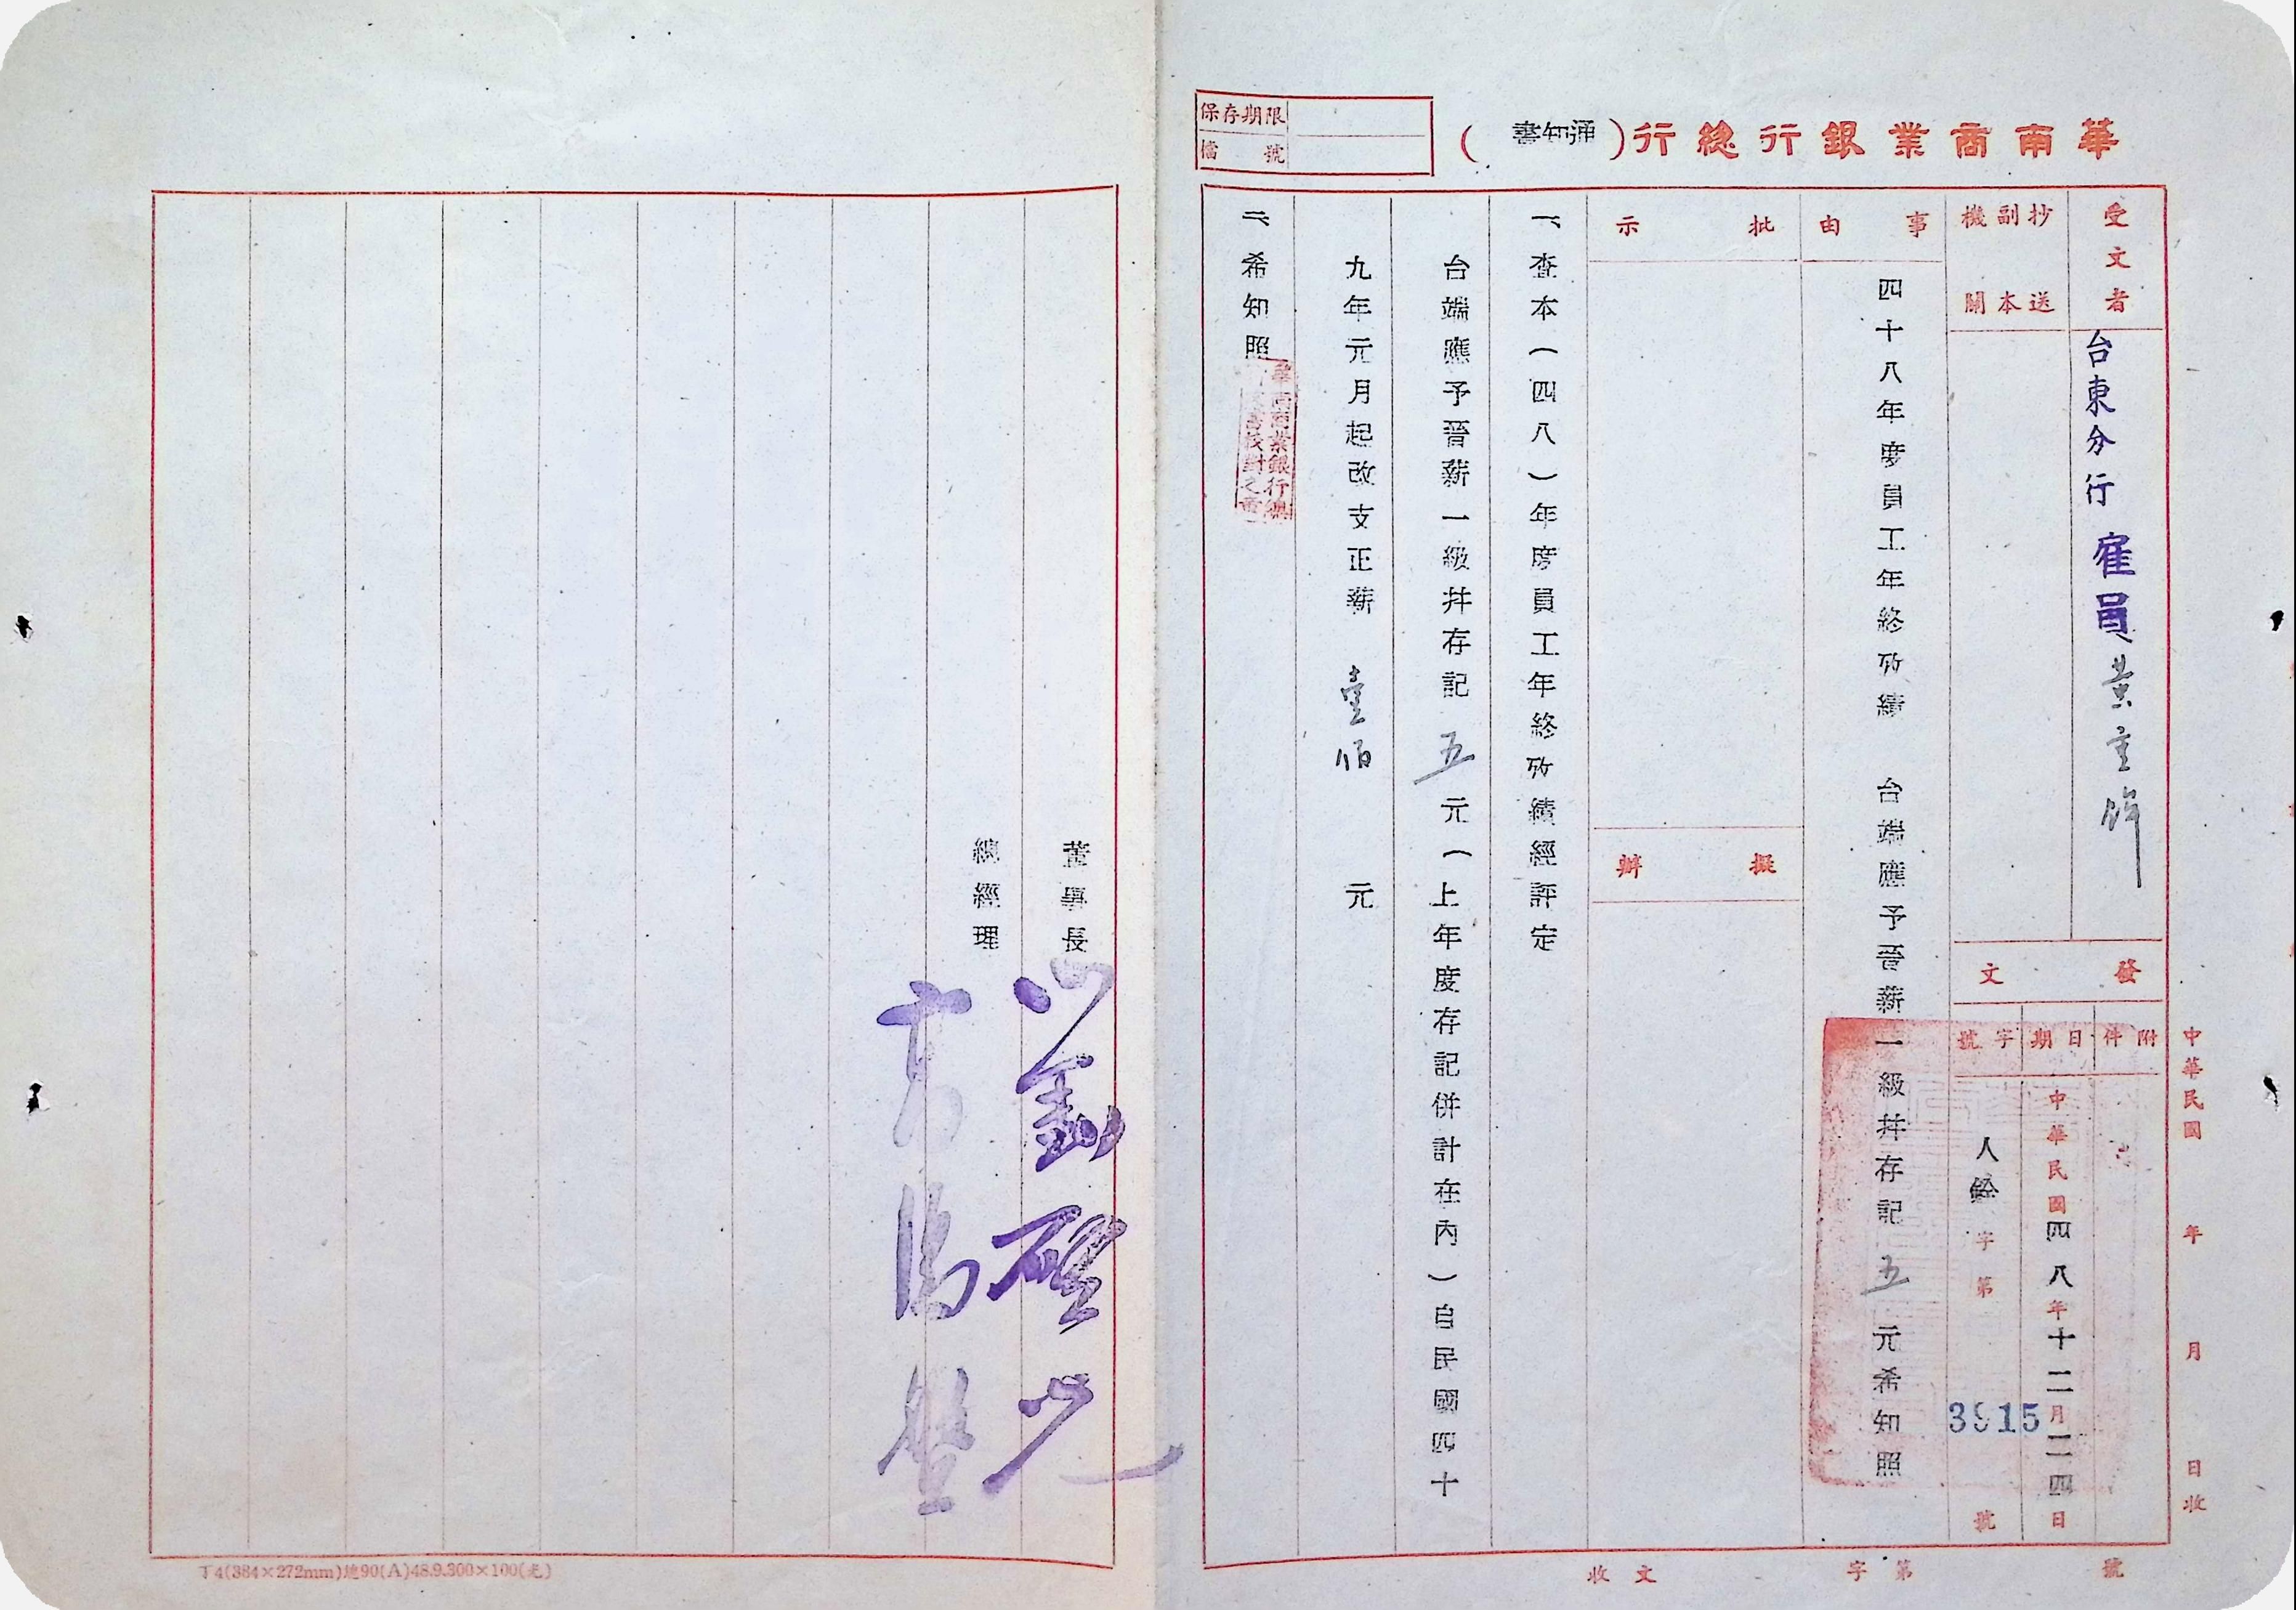 華南商業銀行總行（通知書）
保存期限
檔號
受文者
台東分行 雇員 黃
抄送副本機關
發文
附件
日期
中華民國四八年十二月二四日
字號
人 字第3915號
事由
四十八年度員工年終攷績 台端應予晉薪一級幷存記五元希知照
批示
擬辦
一、查本（四八）年度員工年終攷績經評定
台端應予晉薪一級幷存記五元（上年度存記併計在內）自民國四十
九年元月起改支正薪 壹佰 元
二、希知照
董事長
總經理
中華民國 年 月 日收
收文 字第 號
丁4(384×272mm)總90(A)48.9.300×100(光)